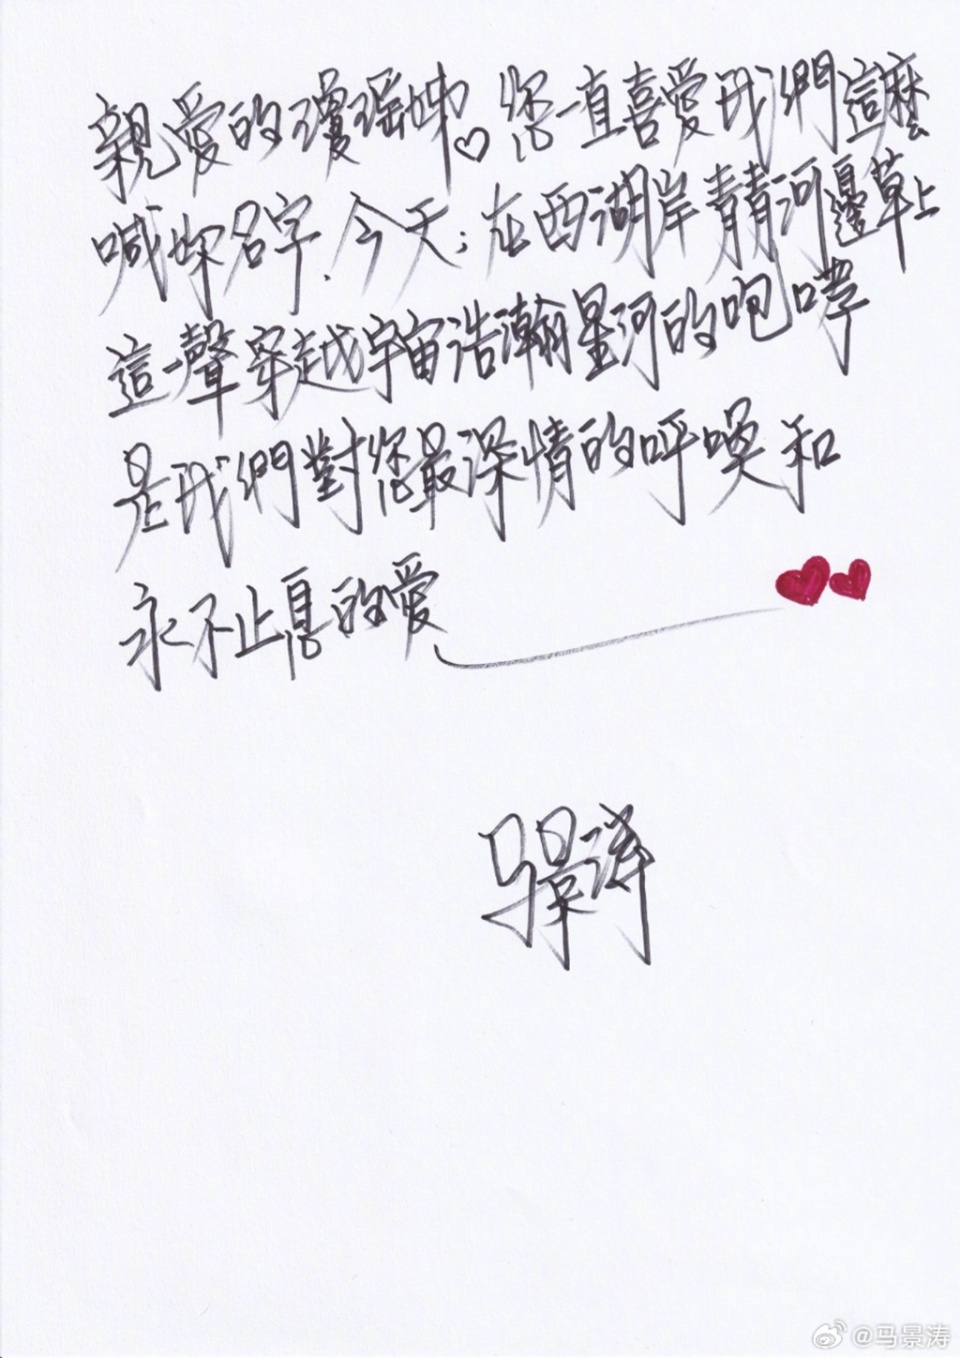 親愛的瓊瑤姊♡您一直喜愛我們這麼
喊妳名字.今天;在西湖岸青青河邊草上
這一聲穿越宇宙浩瀚星河的咆哮
是我們對您最深情的呼喚和
永不止息的愛
馬景濤
@马景涛